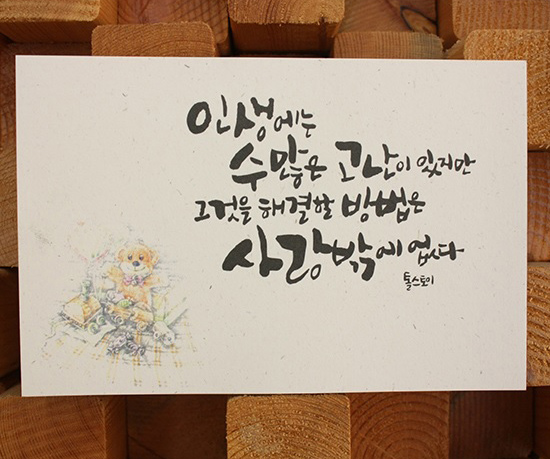 인생에는
수많은 고난이 있지만
그것을 해결할 방법은
사랑밖에 없다
톨스토이